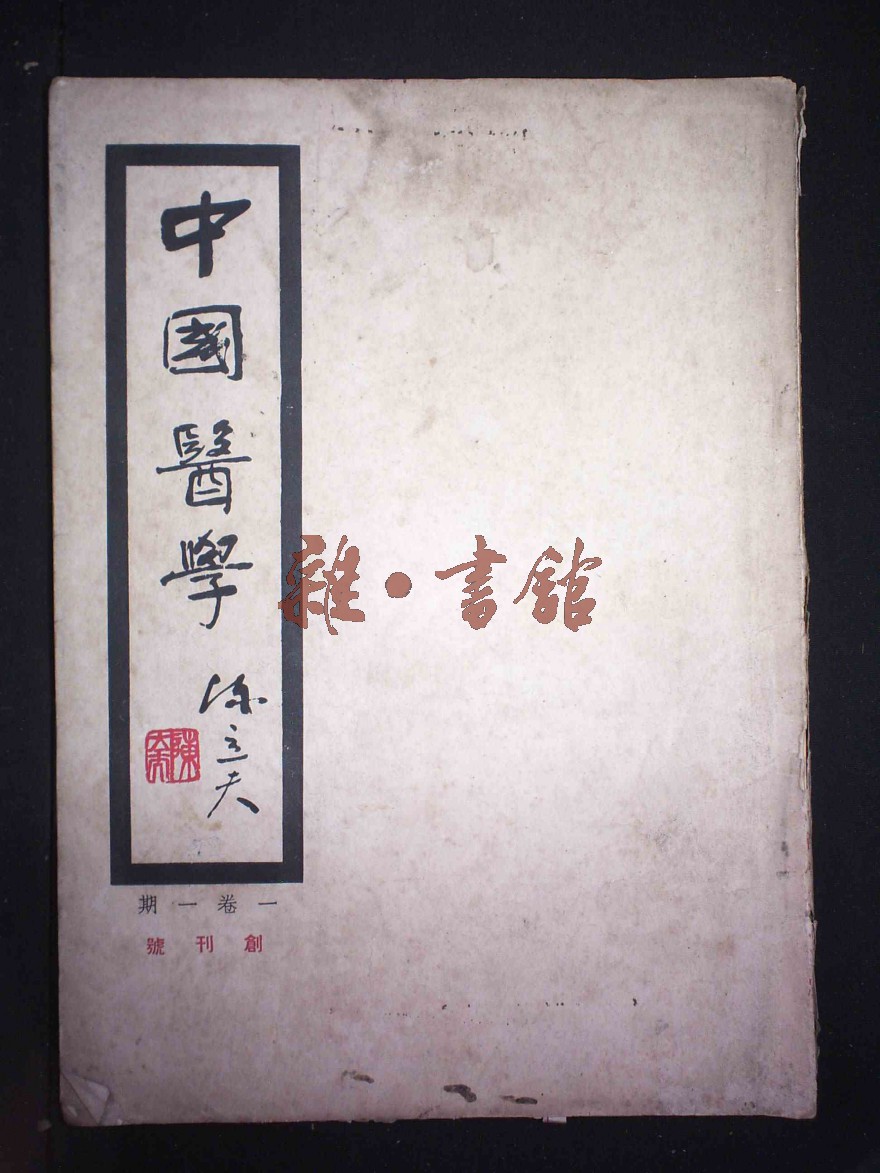 中國醫學
陳立夫
一卷一期
創刊號
雜·書館